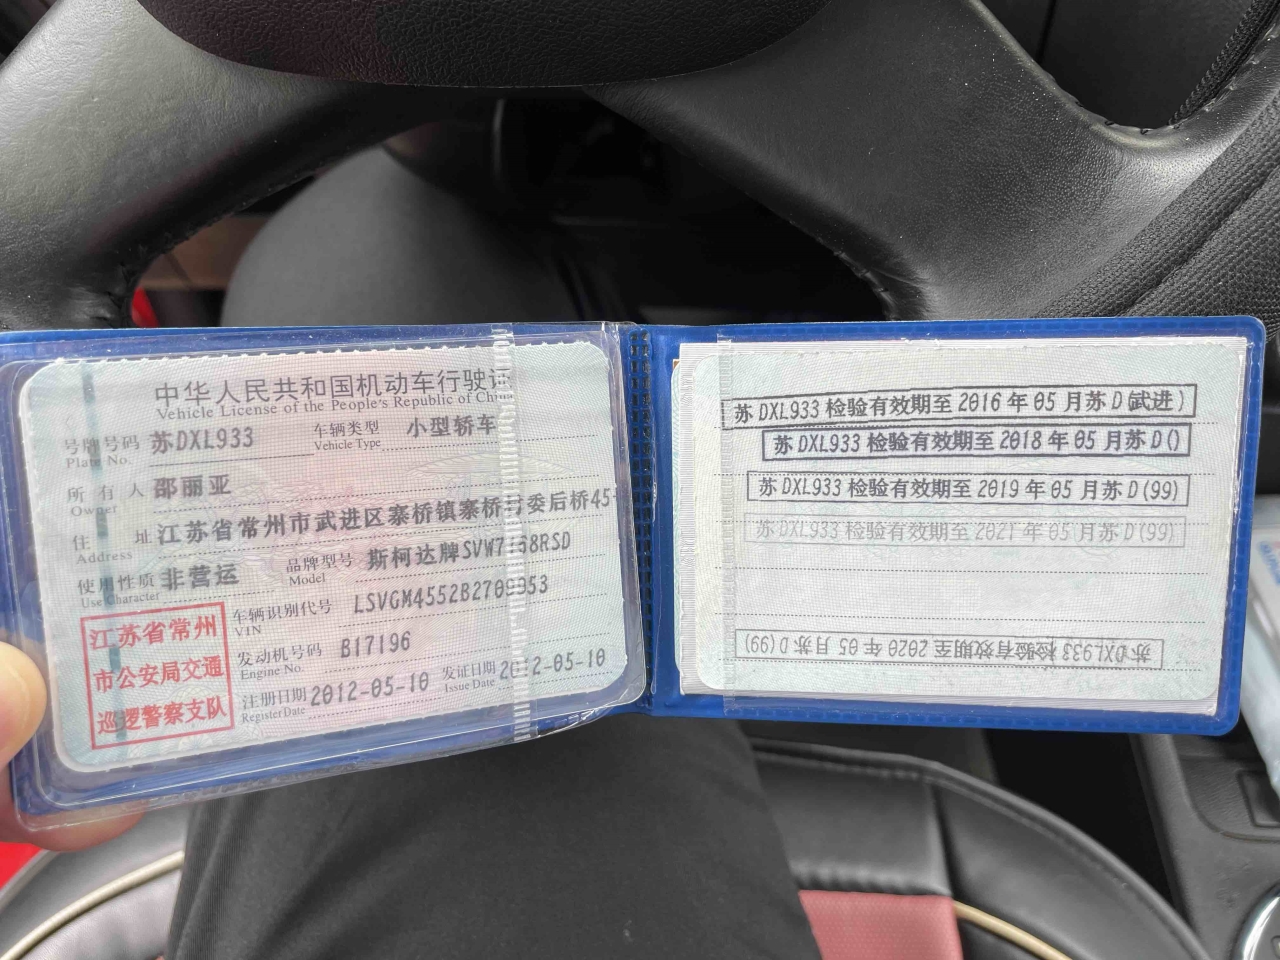 中华人民共和国机动车行驶证
Vehicle License of the People's Republic of China
号牌号码 苏DXL933 车辆类型 小型轿车
Plate No. Vehicle Type
所有人 邵丽亚
Owner
住址 江苏省常州市武进区寨桥镇寨桥村委后桥45
Address
使用性质 非营运 品牌型号 斯柯达牌SVW7168RSD
Use Character Model
车辆识别代号 LSVGM4552B2709953
VIN
发动机号码 B17196
Engine No.
注册日期 2012-05-10 发证日期 2012-05-10
Register Date Issue Date
江苏省常州
市公安局交通
巡逻警察支队
苏DXL933 检验有效期至 2016 年 05 月苏 D(武进)
苏DXL933 检验有效期至 2018 年 05 月苏 D()
苏DXL933 检验有效期至 2019 年 05 月苏 D(99)
苏DXL933 检验有效期至 2021 年 05 月苏 D(99)
苏DXL933 检验有效期至 2020 年 05 月苏 D(99)